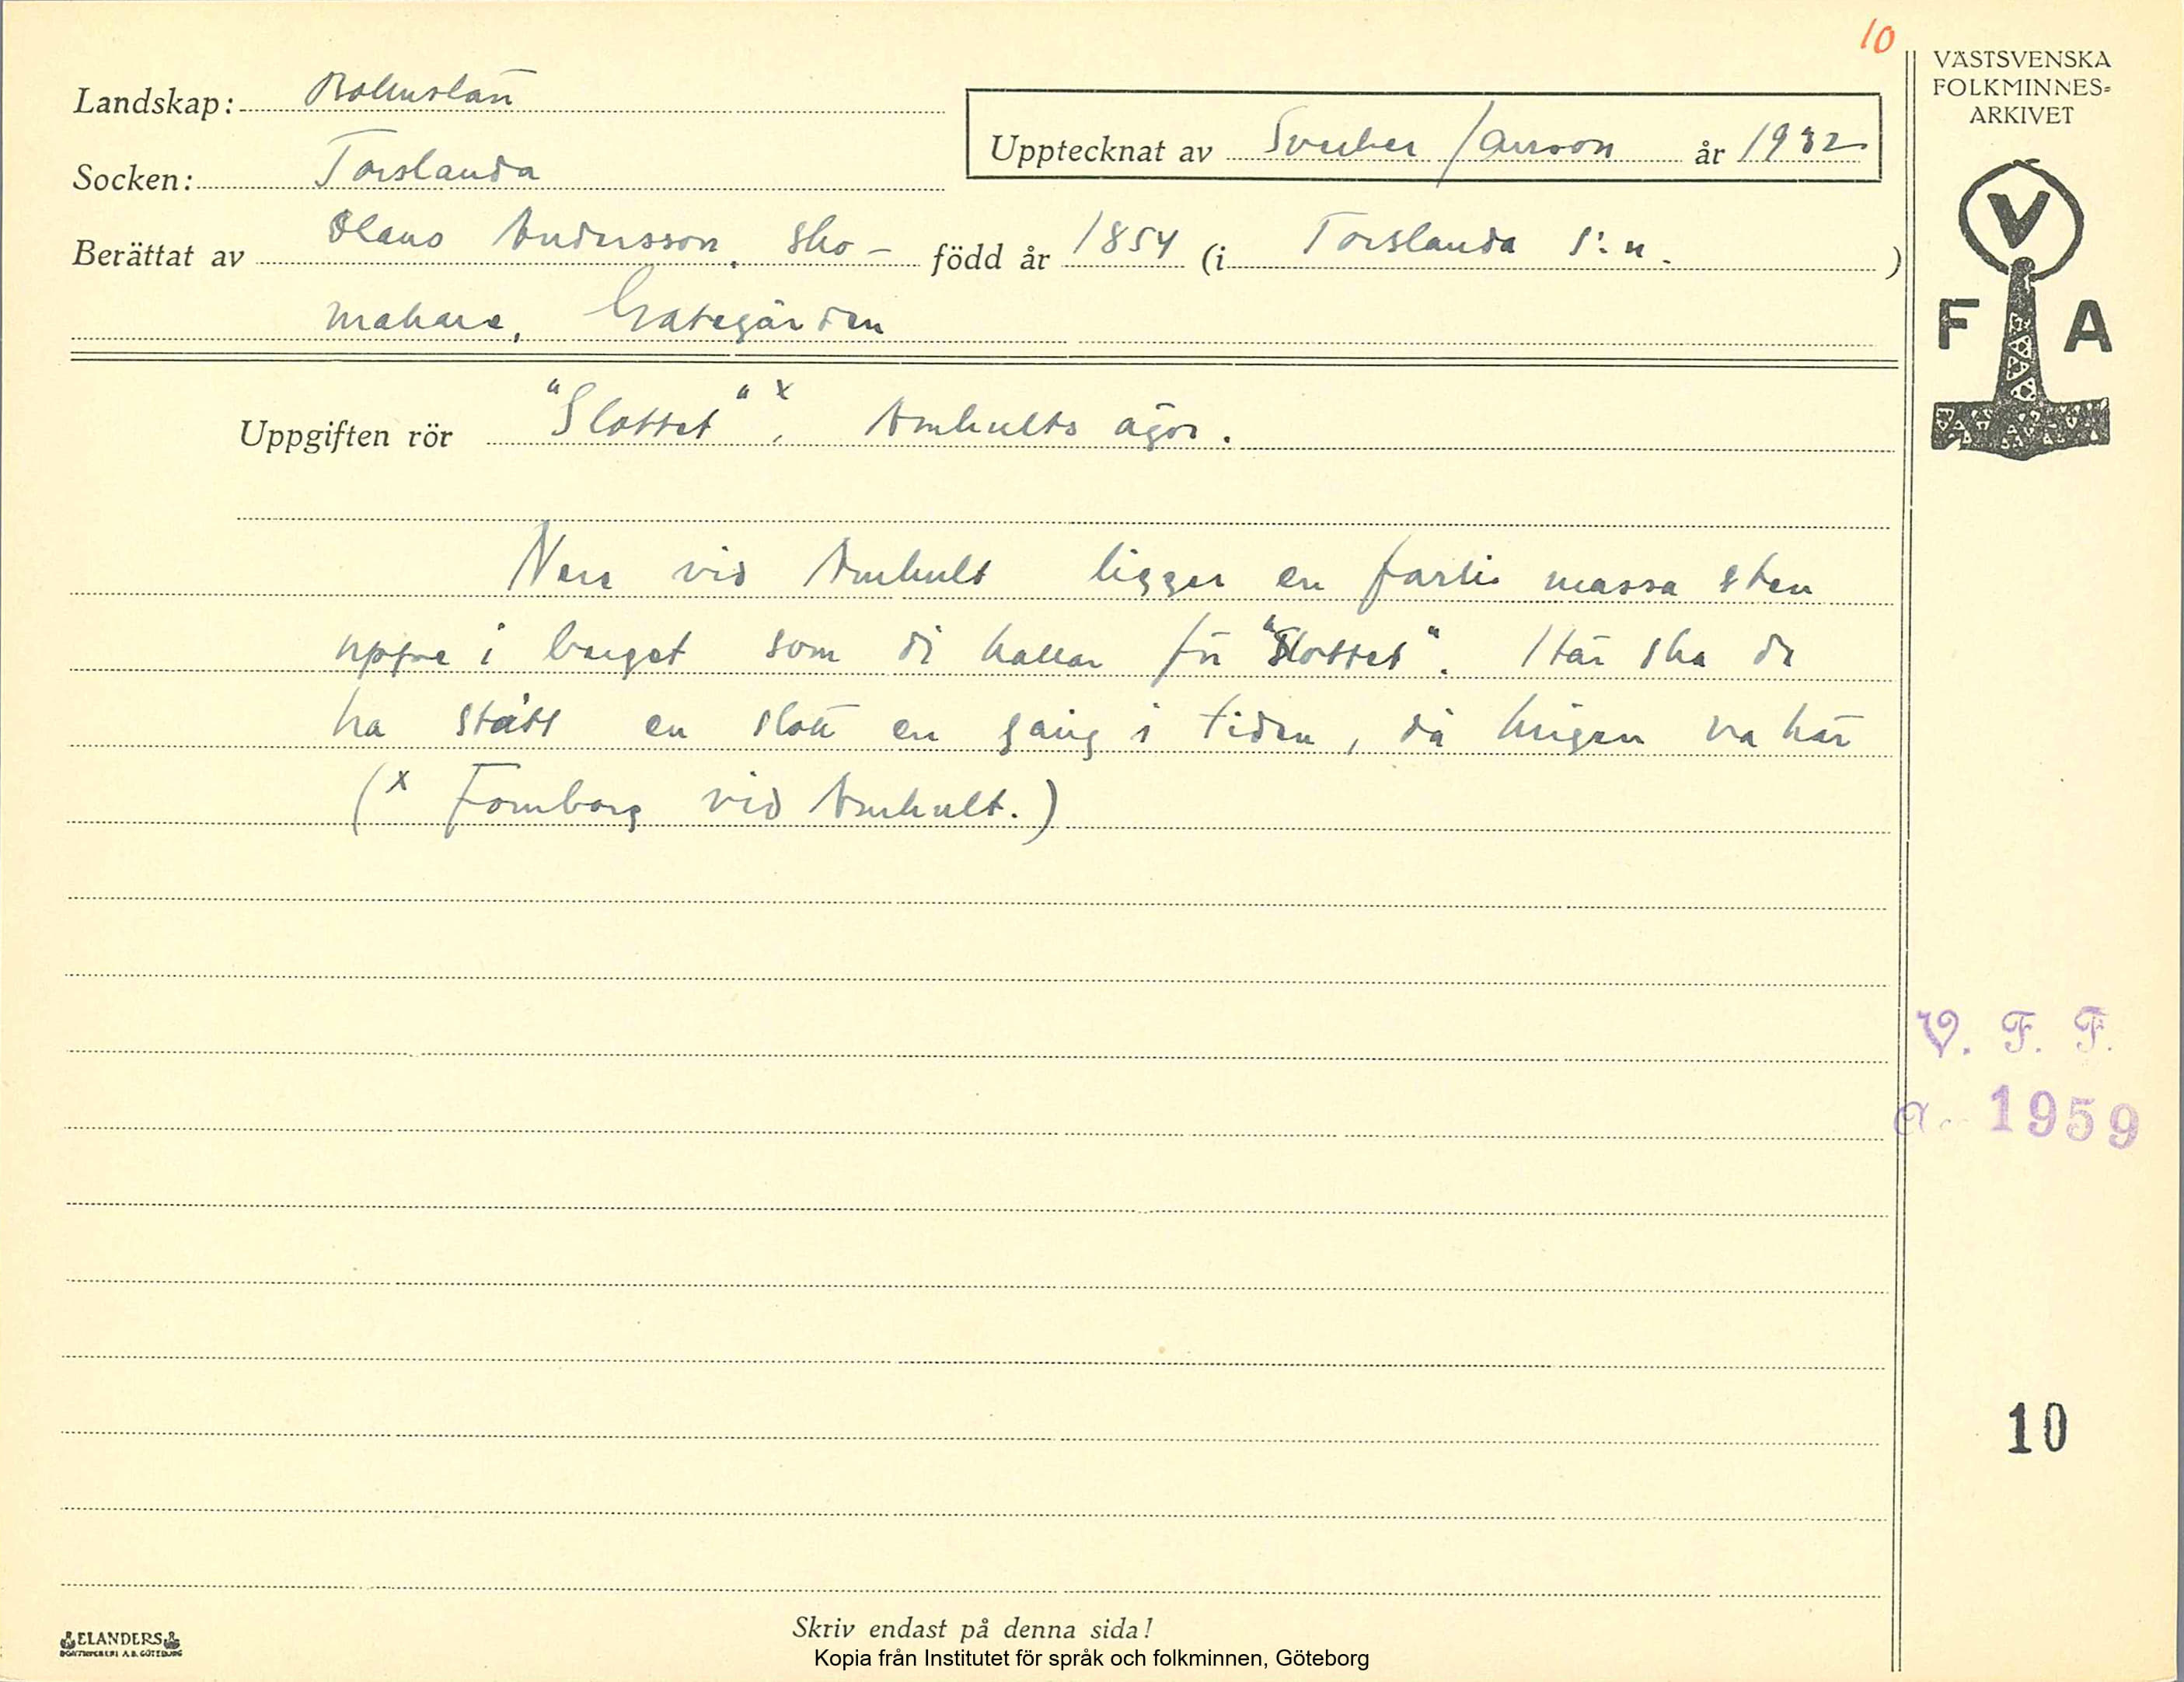 10
VÄSTSVENSKA
FOLKMINNES-
ARKIVET
Landskap: Bohuslän
Upptecknat av Sverker Janson år 1932
Socken: Torslanda
Berättat av Olaus Andersson, sko- född år 1854 (i Torslanda s:n.)
makare, Gategården
V
F A
Uppgiften rör "Slottet"x, Amhults ägor.
Nere vid Amhult ligger en farli massa sten
uppe i berget som di kallar för "Slottet". Här ska de
ha stått en slott en gång i tiden, då kungen va här
(x Fornborg vid Amhult.)
V. F. F.
1959
10
ELANDERS
Skriv endast på denna sida!
Kopia från Institutet för språk och folkminnen, Göteborg